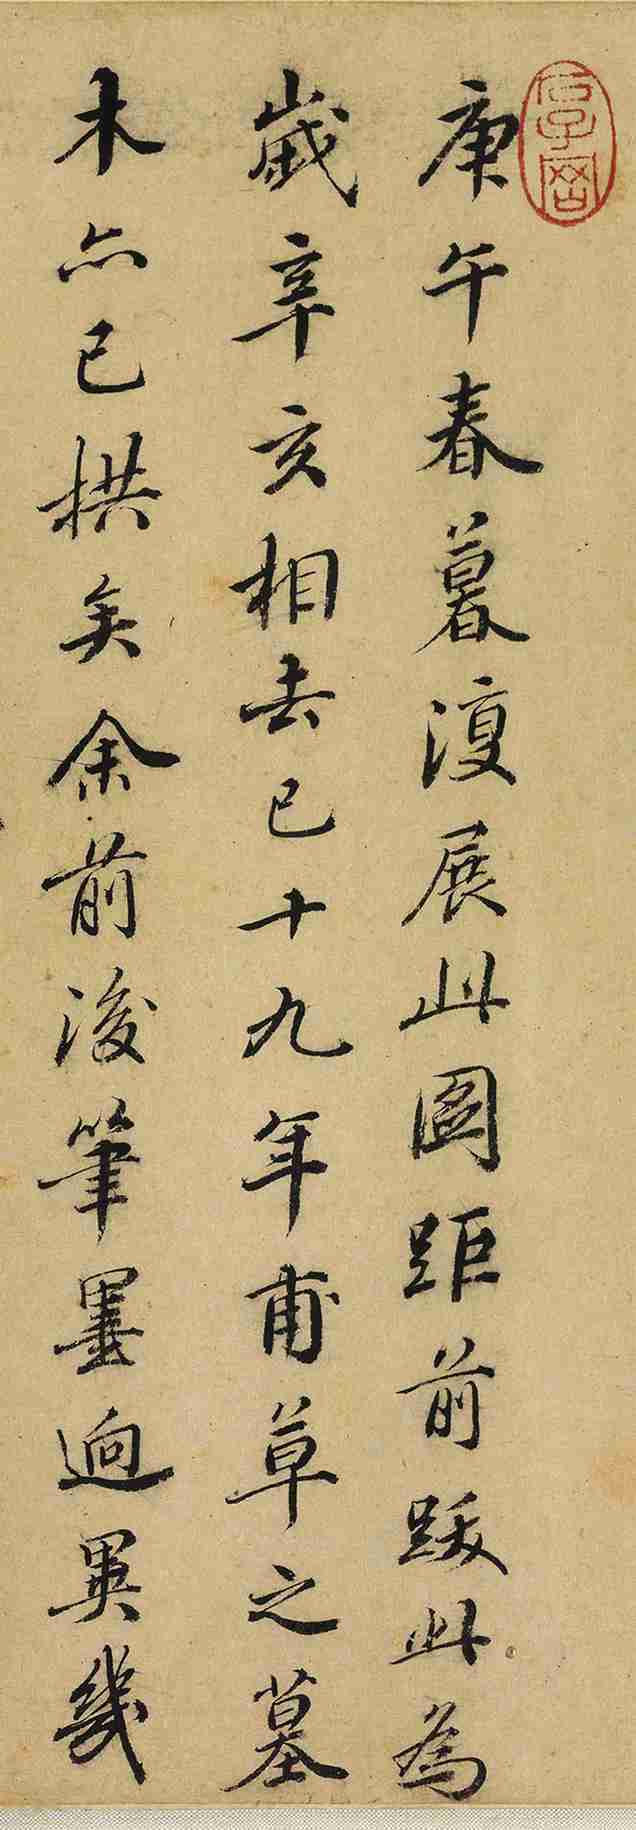 庚午春暮復展此圖距前跋此為
歲辛亥相去已十九年甫草之墓
木亦已拱矣余前後筆墨迥異幾